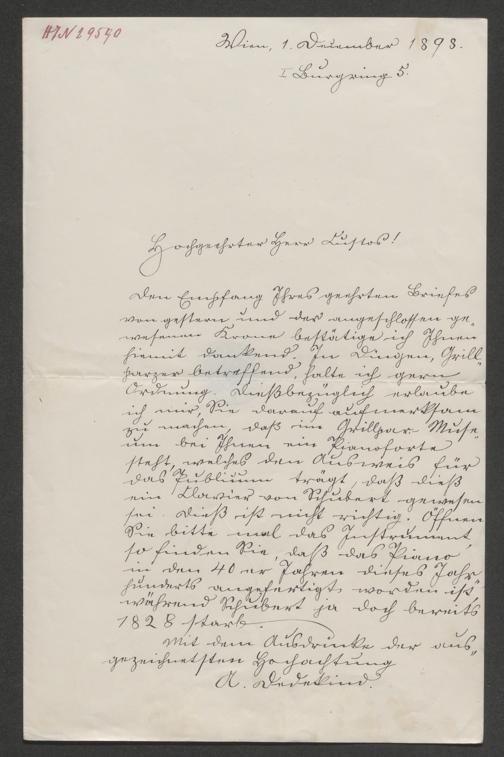 HIN 29540
Wien, 1. Dezember 1898.
I Burgring 5.
Hochgeehrter Herr Custos!
Den Empfang Ihres geehrten Briefes
von gestern und der angeschlossen ge„
wesenen Krone bestätige ich Ihnen
hiemit dankend. In Dingen, Grill„
parzer betreffend, halte ich gern
Ordnung. Dießbezüglich erlaube
ich mir, Sie darauf aufmerksam
zu machen, daß im Grillpar. Muse„
um bei Ihnen ein Pianoforte
steht, welches den Ausweis für
das Publicum trägt, daß dieß
ein Clavier von Schubert gewesen
sei. Dieß ist nicht richtig. Öffnen
Sie bitte mal das Instrument,
so finden Sie, daß das Piano
in den 40er Jahren dieses Jahr„
hunderts angefertigt worden ist,
während Schubert ja doch bereits
1828 starb.
Mit dem Ausdrucke der aus„
gezeichnetsten Hochachtung
A. Dedekind.